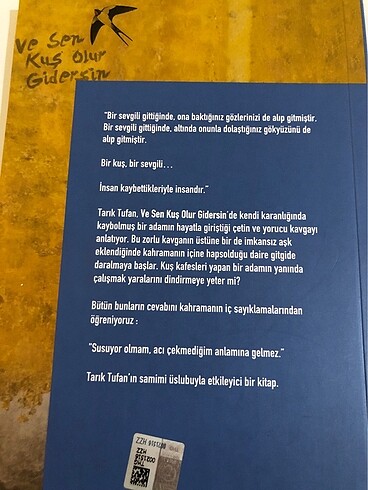 Ve Sen
Kuş Olur
Gidersin
"Bir sevgili gittiğinde, ona baktığınız gözlerinizi de alıp gitmiştir.
Bir sevgili gittiğinde, altında onunla dolaştığınız gökyüzünü de
alıp gitmiştir.
Bir kuş, bir sevgili...
İnsan kaybettikleriyle insandır."
Tarık Tufan, Ve Sen Kuş Olur Gidersin'de kendi karanlığında
kaybolmuş bir adamın hayatla giriştiği çetin ve yorucu kavgayı
anlatıyor. Bu zorlu kavganın üstüne bir de imkansız aşk
eklendiğinde kahramanın içine hapsolduğu daire gitgide
daralmaya başlar. Kuş kafesleri yapan bir adamın yanında
çalışmak yaralarını dindirmeye yeter mi?
Bütün bunların cevabını kahramanın iç sayıklamalarından
öğreniyoruz :
"Susuyor olmam, acı çekmediğim anlamına gelmez."
Tarık Tufan'ın samimi üslubuyla etkileyici bir kitap.